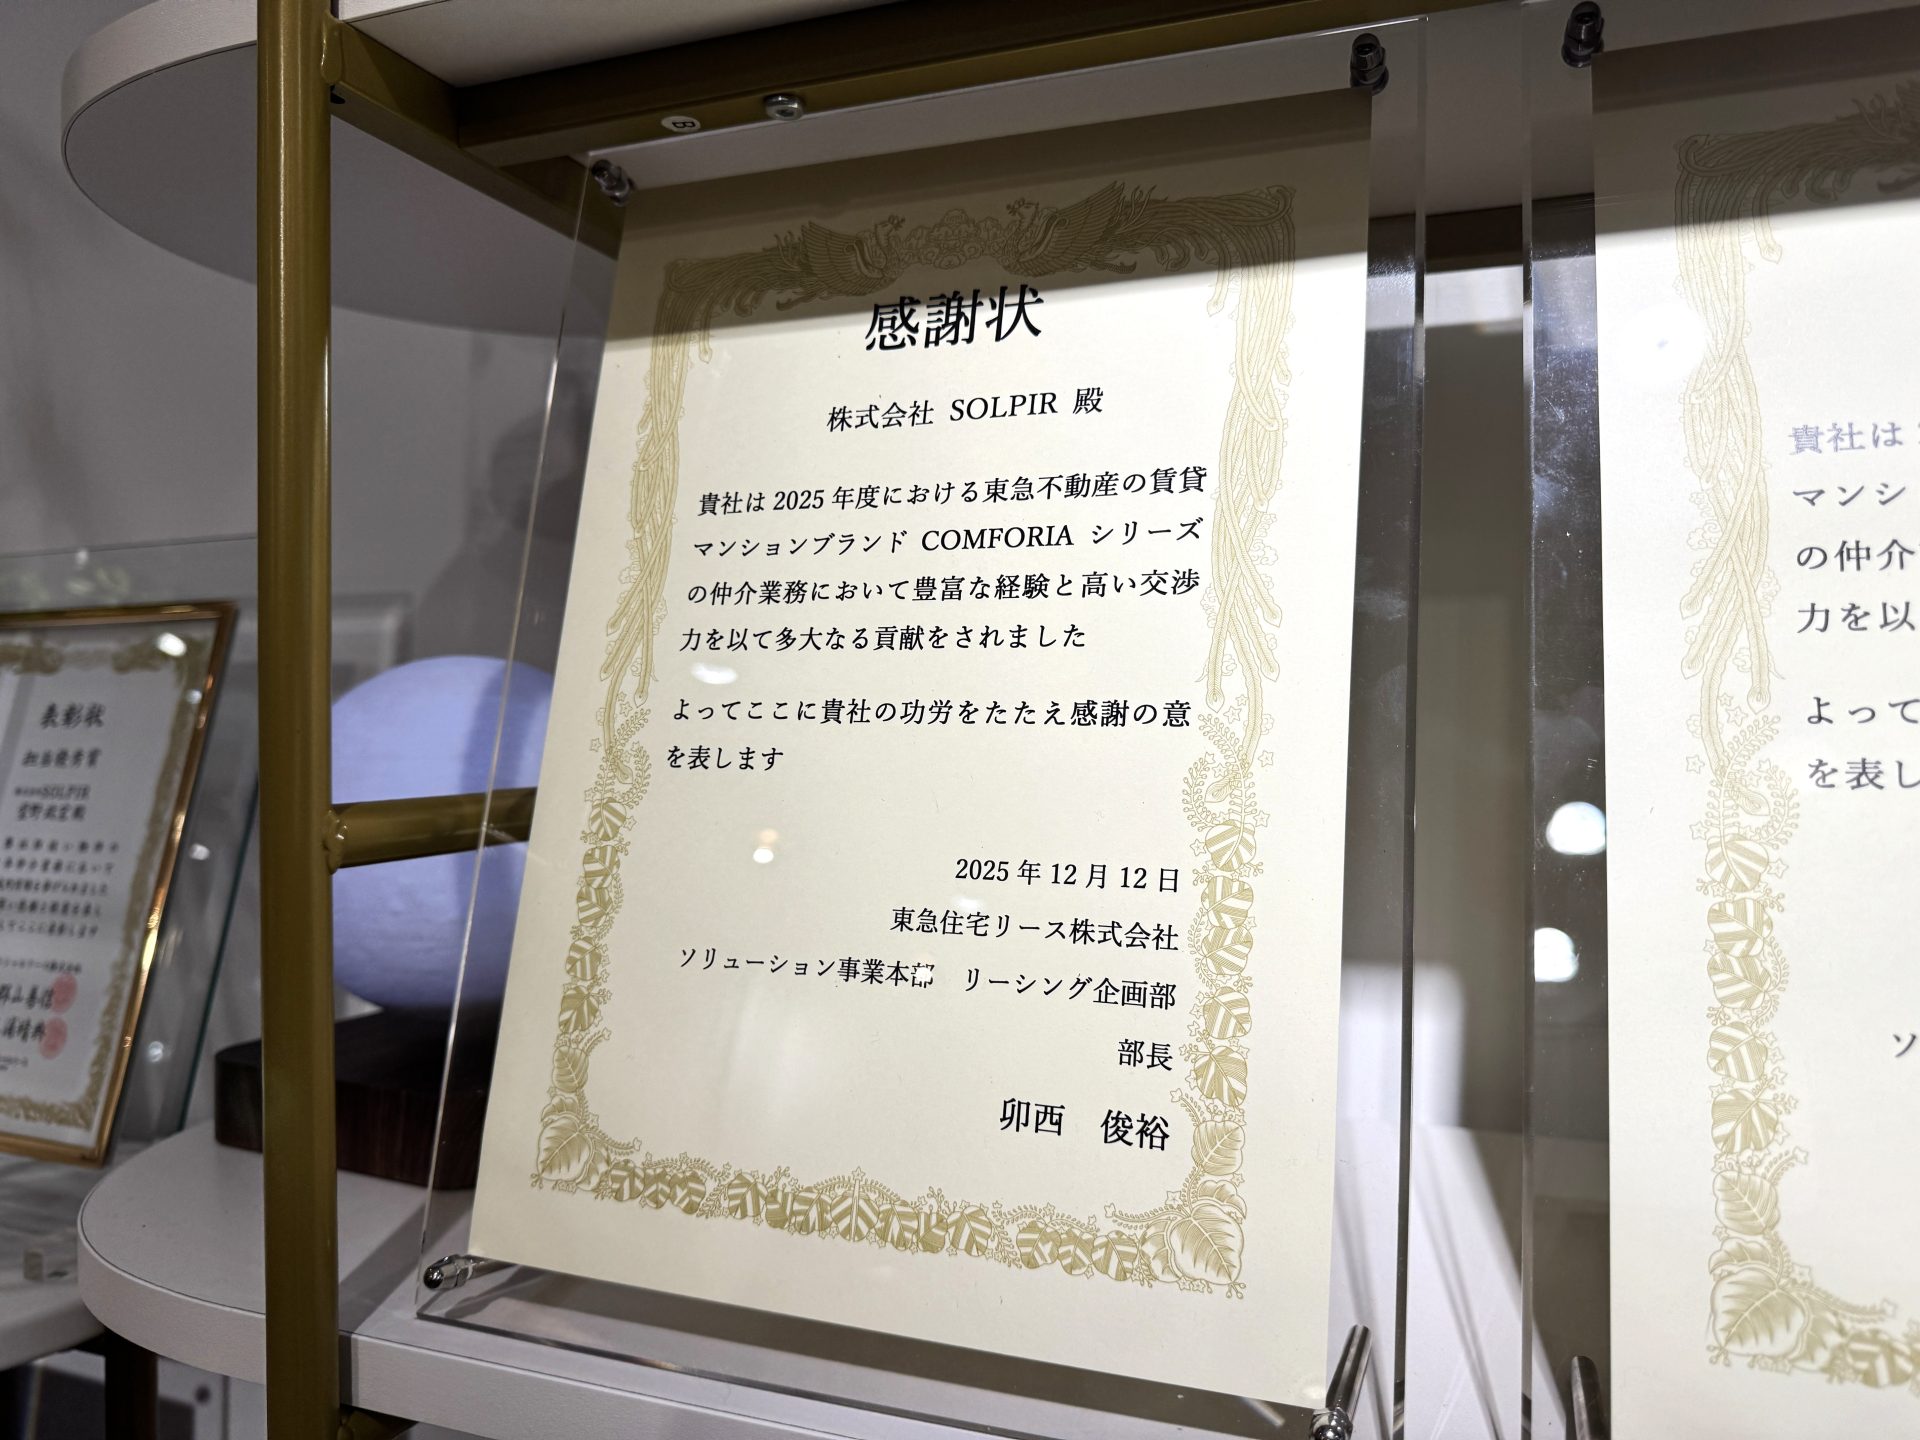 感謝状
株式会社 SOLPIR 殿
貴社は 2025 年度における東急不動産の賃貸
マンションブランド COMFORIA シリーズ
の仲介業務において豊富な経験と高い交渉
力を以て多大なる貢献をされました
よってここに貴社の功労をたたえ感謝の意
を表します
2025 年 12 月 12 日
東急住宅リース株式会社
ソリューション事業本部 リーシング企画部
部長
卯西 俊裕
B
表彰状
SOLPIR
貴社は
マンシ
の仲介
力を以
よって
を表し
ソ